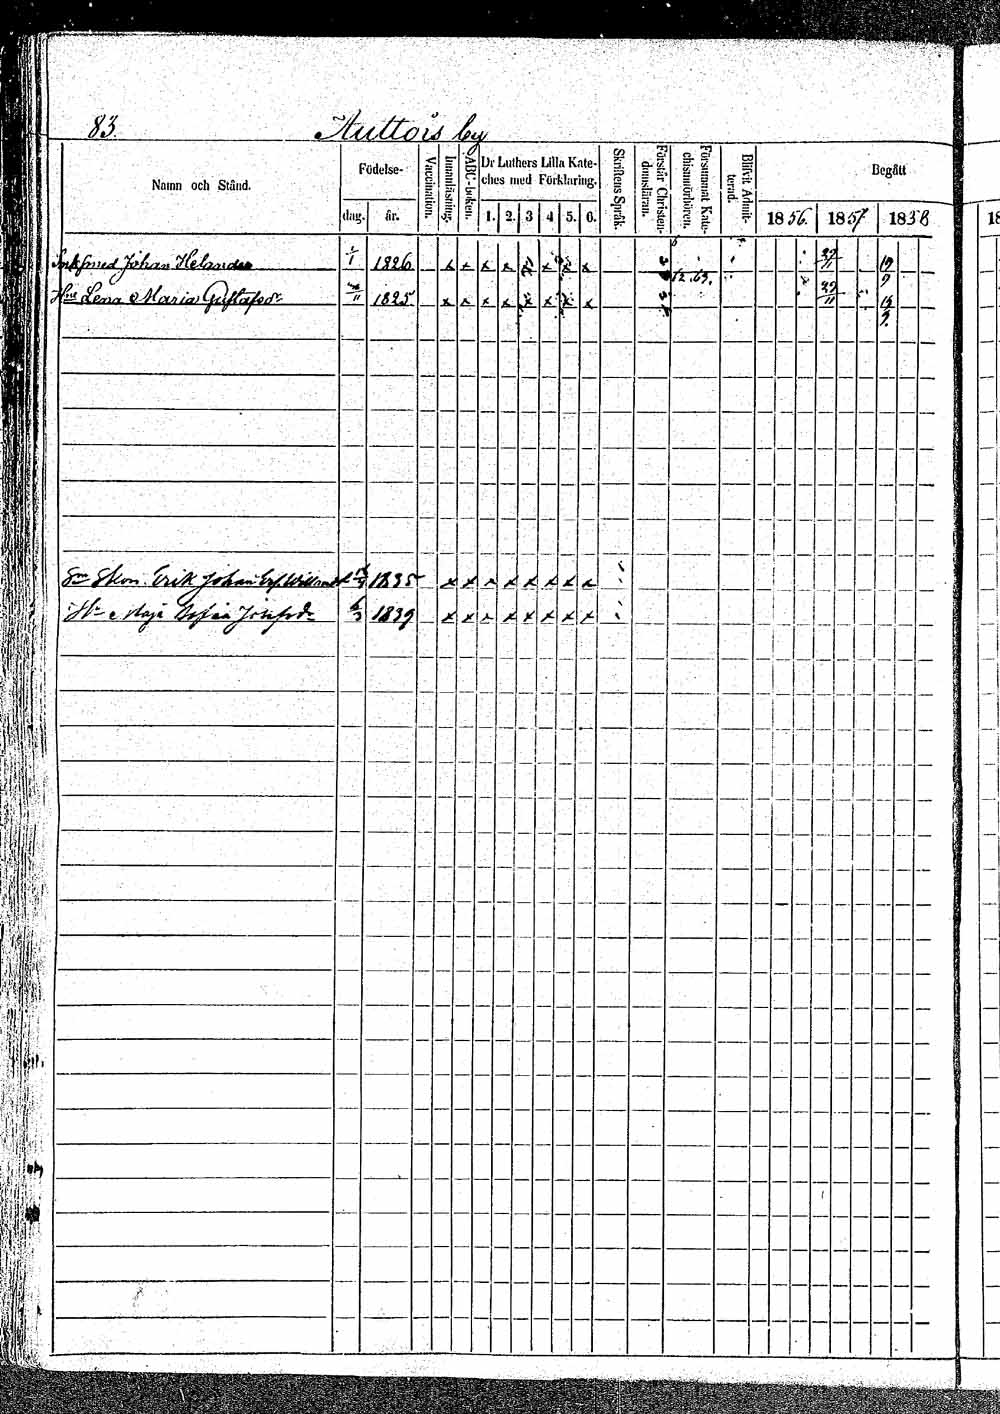 83.
Auttois by
Namn och Stånd.
Födelse-
dag. år.
Vaccination.
Innanläsning.
ABC-boken.
Dr Luthers Lilla Kate-
ches med Förklaring.
1. 2. 3 4 5. 6.
Skriftens Språk.
Förstår Christen-
domsläran.
Försummat Kate-
chismiförhören.
Blifvit Admit-
terad.
Begått
1856. 1857 1858
18
Johan Helander 1826 x x x x x x x 29/11 19/9
12.63.
Hnu Lena Maria Gustafsdr 11 1825 x x x x x x x x 29/11
Erik Johan 1835 x x x x x x x x
Maja Sofia 1839 x x x x x x x x